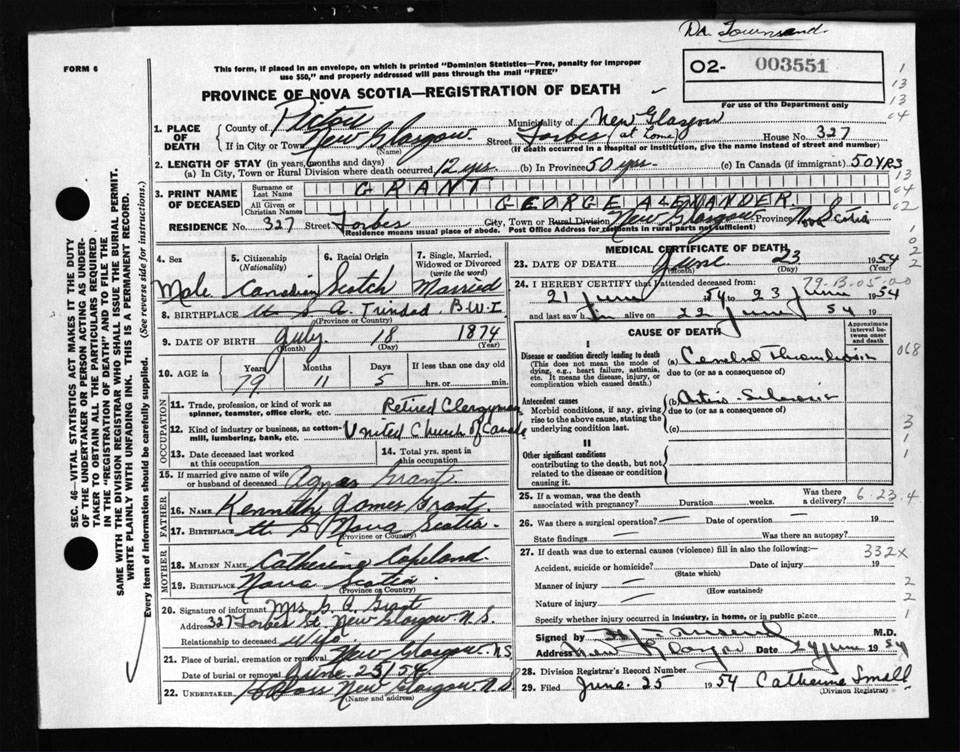 Dr. Townsend.
FORM 6
This form, if placed in an envelope, on which is printed "Dominion Statistics—Free, penalty for improper
use $50," and properly addressed will pass through the mail "FREE"
O2- 003551
For use of the Department only
PROVINCE OF NOVA SCOTIA—REGISTRATION OF DEATH
1. PLACE OF DEATH
County of Pictou Municipality of New Glasgow
If in City or Town New Glasgow (Name) Street Forbes (at home) House No. 327
(If death occurred in a hospital or institution, give the name instead of street and number)
2. LENGTH OF STAY (in years, months and days)
(a) In City, Town or Rural Division where death occurred 12 yrs (b) In Province 50 yrs. (c) In Canada (if immigrant) 50 YRS
3. PRINT NAME OF DECEASED
Surname or Last Name GRANT
All Given or Christian Names GEORGE ALEXANDER
RESIDENCE No. 327 Street Forbes City, Town or Rural Division New Glasgow Province Nova Scotia
(Residence means usual place of abode. Post Office Address for residents in rural parts not sufficient)
4. Sex
Male
5. Citizenship (Nationality)
Canadian
6. Racial Origin
Scotch
7. Single, Married, Widowed or Divorced (write the word)
Married
8. BIRTHPLACE S. A. Trinidad. B.W.I.
(Province or Country)
9. DATE OF BIRTH July 18 1874
(Month) (Day) (Year)
10. AGE in Years Months Days If less than one day old
79 11 5 hrs. or min.
OCCUPATION
11. Trade, profession, or kind of work as spinner, teamster, office clerk, etc. Retired Clergyman
12. Kind of industry or business, as cotton-mill, lumbering, bank, etc. United Church of Canada
13. Date deceased last worked at this occupation
14. Total yrs. spent in this occupation
15. If married give name of wife or husband of deceased Agnes Grant
FATHER
16. Name Kenneth James Grant
17. Birthplace Nova Scotia.
(Province or Country)
MOTHER
18. MAIDEN NAME Catherine Copeland.
19. BIRTHPLACE Nova Scotia.
(Province or Country)
20. Signature of informant Mrs. G. A. Grant
Address 327 Forbes St. New Glasgow N.S.
Relationship to deceased Wife
21. Place of burial, cremation or removal New Glasgow. N.S
Date of burial or removal June 25/54
22. UNDERTAKER New Glasgow. N.S
(Name and address)
MEDICAL CERTIFICATE OF DEATH
23. DATE OF DEATH June 23 1954
(Month) (Day) (Year)
79-B-05-00
24. I HEREBY CERTIFY that I attended deceased from:
21 June 54 to 23 June 1954
and last saw him alive on 22 June 54 19
CAUSE OF DEATH
Approximate interval between onset and death
I
Disease or condition directly leading to death
(This does not mean the mode of dying, e.g., heart failure, asthenia, etc. It means the disease, injury, or complication which caused death.
(a) Cerebral Thrombosis
due to (or as a consequence of)
Antecedent causes
Morbid conditions, if any, giving rise to the above cause, stating the underlying condition last.
(b) Arterio-Sclerosis
due to (or as a consequence of)
(c)
II
Other significant conditions
contributing to the death, but not related to the disease or condition causing it.
25. If a woman, was the death associated with pregnancy? Duration weeks. Was there a delivery?
6-23-4
26. Was there a surgical operation? Date of operation 19
State findings Was there an autopsy?
27. If death was due to external causes (violence) fill in also the following:
332x
Accident, suicide or homicide? Date of injury 19
(State which)
Manner of injury
(How sustained)
Nature of injury
Specify whether injury occurred in industry, in home, or in public place
Signed by M.D.
Address New Glasgow Date 24 June 1954
28. Division Registrar's Record Number
29. Filed June. 25 1954 Catherine Small
(Division Registrar)
SEC. 46—VITAL STATISTICS ACT MAKES IT THE DUTY
OF THE UNDERTAKER OR PERSON ACTING AS UNDERTAKER TO OBTAIN ALL THE PARTICULARS REQUIRED
IN THE "REGISTRATION OF DEATH" AND TO FILE THE
SAME WITH THE DIVISION REGISTRAR WHO SHALL ISSUE THE BURIAL PERMIT.
WRITE PLAINLY WITH UNFADING INK. THIS IS A PERMANENT RECORD.
Every item of information should be carefully supplied. (See reverse side for instructions.)
1
13
13
04
13
04
02
1
0
2
2
068
3
1
1
2
2